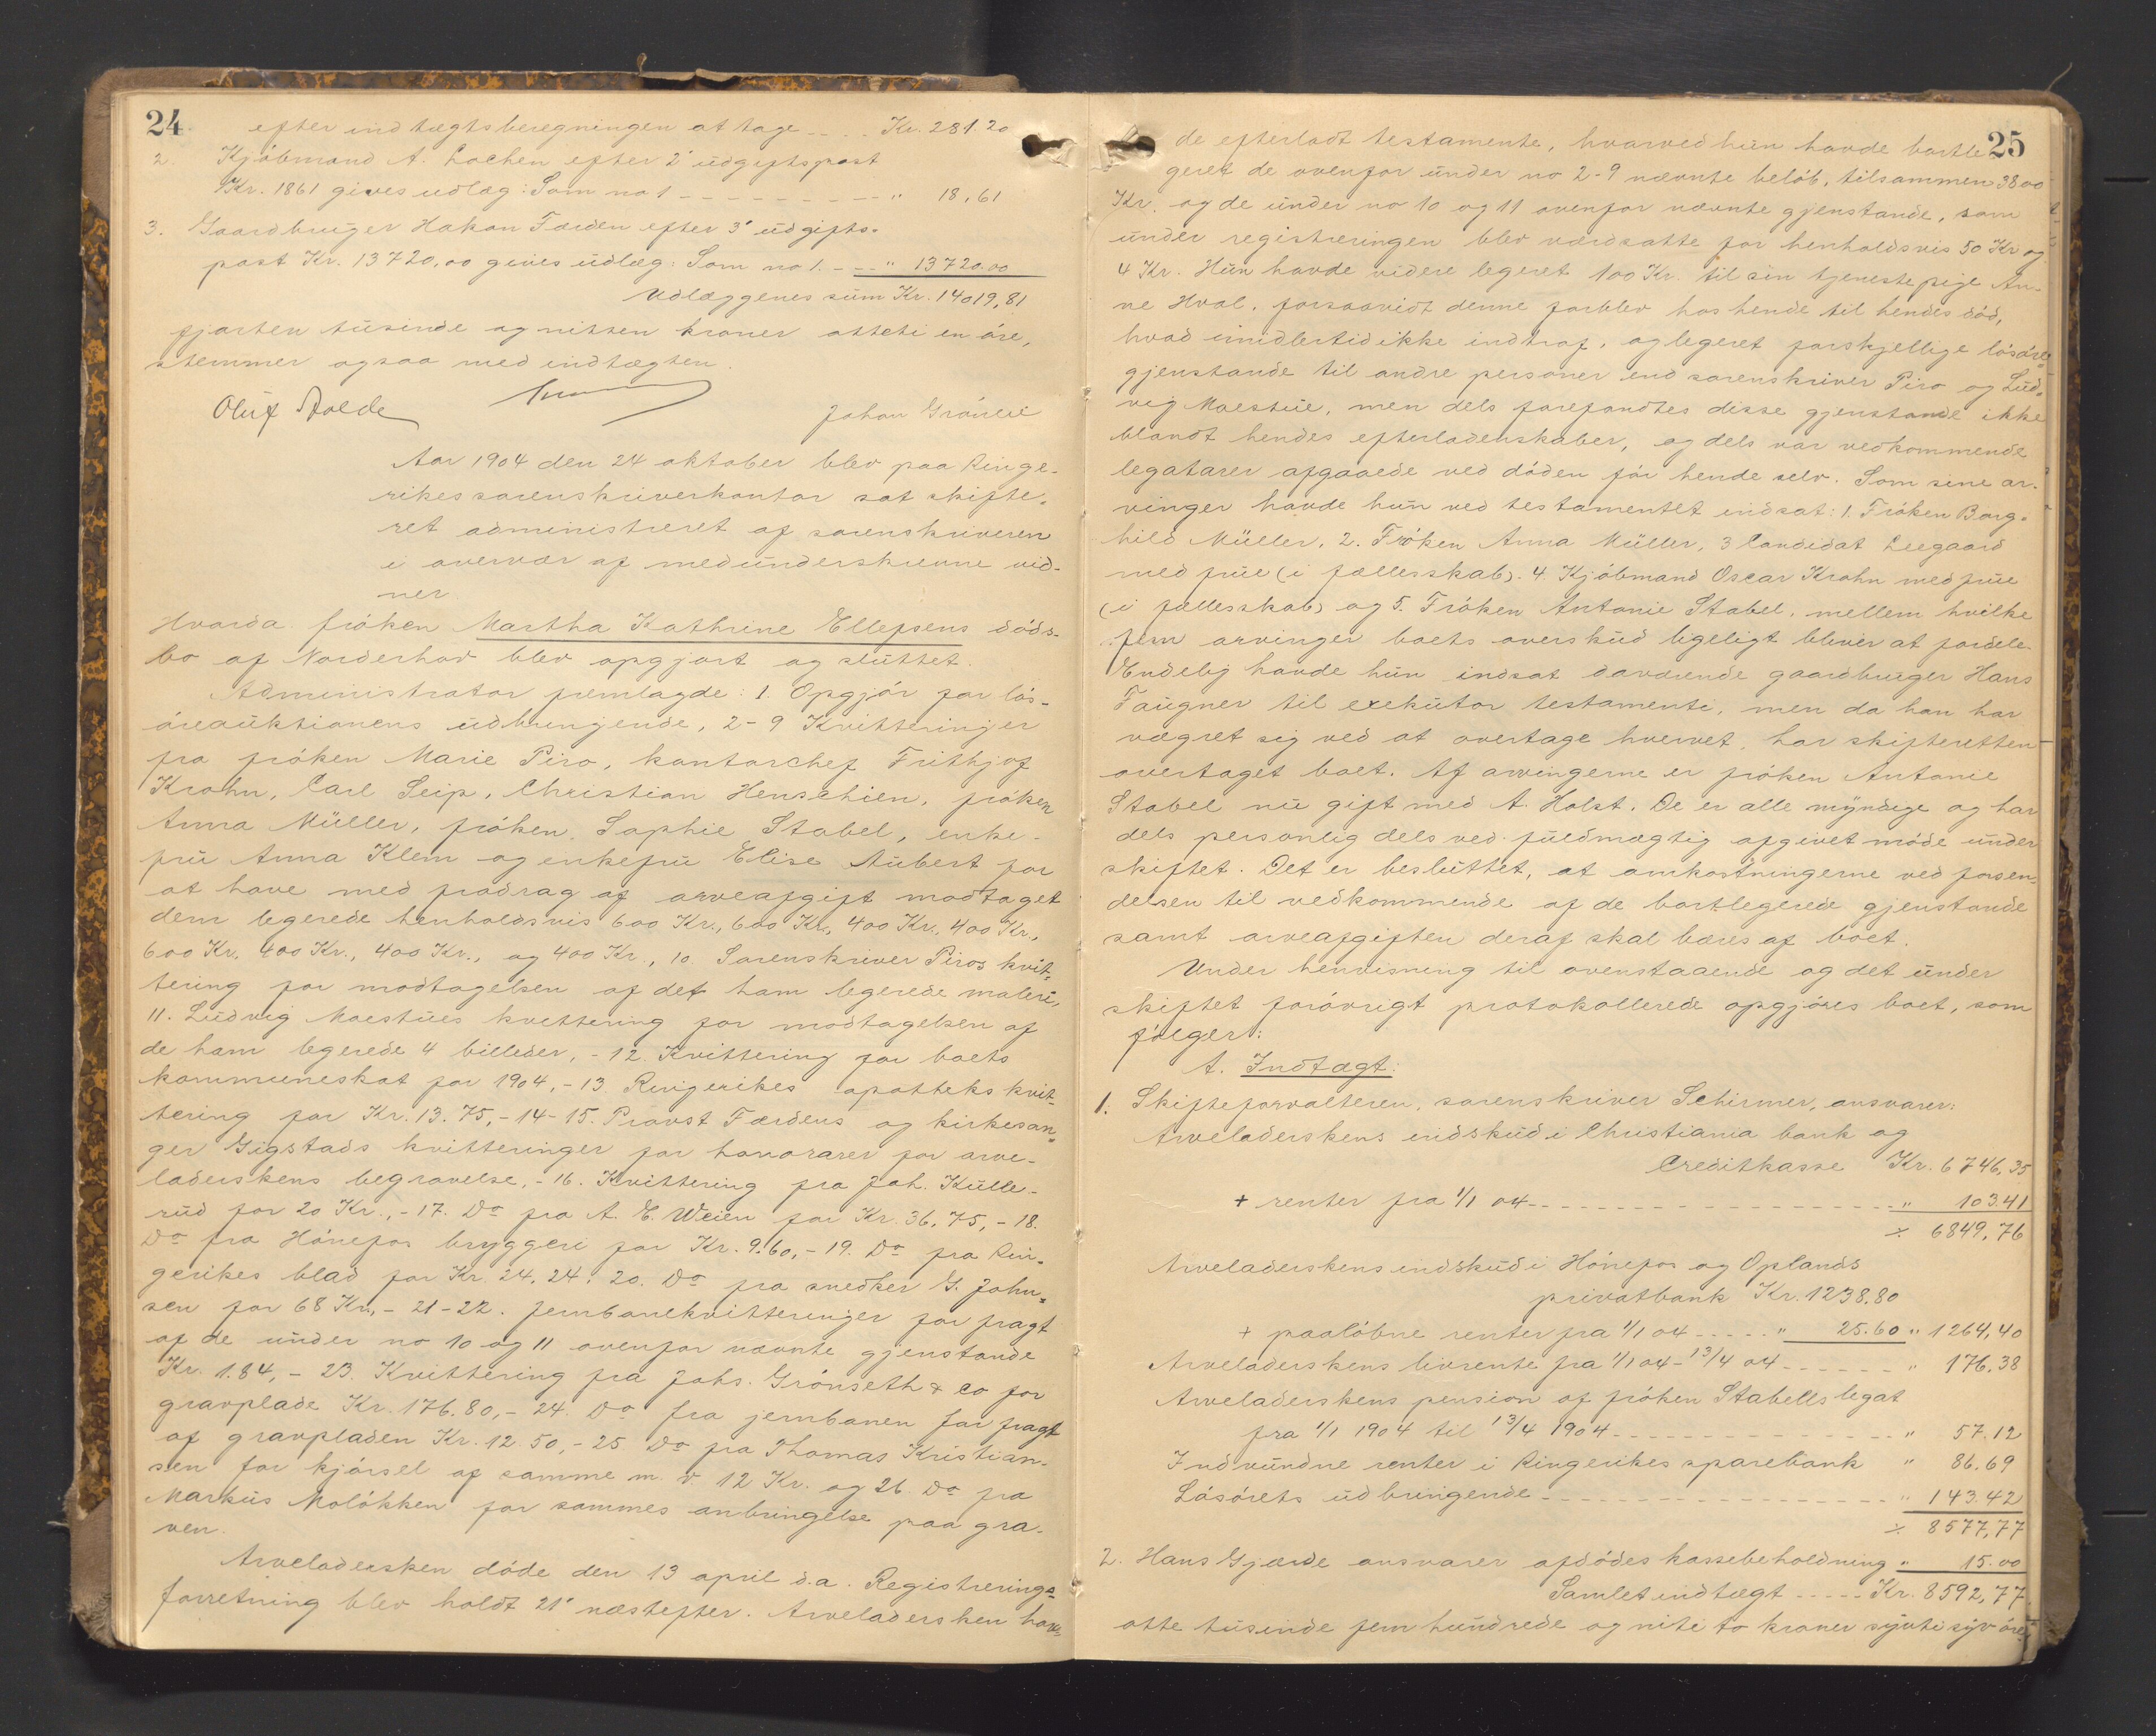 24
efter indtægtsberegningen at tage .... Kr. 281.20
2. Kjöbmand A. Lochen efter 2' udgiftspost
Kr. 1861 gives udlæg: Som no 1 - - - " 18,61
3. Gaardbruger Hakon Færden efter 3' udgifts-
post Kr. 13720,00 gives udlæg: Som no 1. - - " 13720.00
Udlæggenes sum Kr. 14019,81
fjorten tusinde og nitten kroner otteti en öre,
stemmer ogsaa med indtægten.
Oluf Johan
Aar 1904 den 24 oktober blev paa Ringe-
rikes sorenskriverkontor sat skifte-
ret administreret af sorenskriveren
i overvær af medunderskrevne vid-
ner.
Hvorda fröken Martha Kathrine Ellefsens döds-
bo af Norderhov blev opgjort og sluttet.
Administrator fremlagde: 1. Opgjör for lös-
öreauktionens udbringende, 2-9 Kvitteringer
fra fröken Marie Piro, kontorchef Frithjof
Krohn, Carl Seip, Christian Henschien, fröken
Anna Müller, fröken Sophie Stabel, enke-
fru Anna Klem og enkefru Elise Aubert for
at have med fradrag af arveafgift modtaget
dem legerede henholdsvis 600 Kr., 600 Kr., 400 Kr., 400 Kr.,
600 Kr, 400 Kr., 400 Kr., og 400 Kr., 10. Sorenskriver Piros kvit-
tering for modtagelsen af det ham legerede maleri,
11. Ludvig Moestues kvittering for modtagelsen af
de ham legerede 4 billeder, - 12. Kvittering for boets
kommuneskat for 1904, - 13 Ringerikes apotheks kvit-
tering for Kr. 13.75, - 14-15. Provst Færdens og kirkesan-
ger Gigstads kvitteringer for honorarer for arve-
laderskens begravelse, - 16. Kvittering fra Joh. Kulle-
rud for 20 Kr., - 17. Do fra A. E. Weien for Kr. 36,75, - 18.
Do fra Hönefos bryggeri for Kr. 9.60, - 19. Do fra Rin-
gerikes blad for Kr. 24.24, 20. Do fra snedker G. John-
sen for 68 Kr., - 21-22. Jernbanekvitteringer for fragt
af de under no 10 og 11 ovenfor nævnte gjenstande
Kr. 1.84, - 23. Kvittering fra Johs. Grönseth & Co for
gravplade Kr. 176.80, - 24. Do fra jernbanen for fragt
af gravpladen Kr. 12.50, - 25 Do fra Thomas Kristian-
sen for kjörsel af samme m. v. 12 Kr. og 26. Do fra
Markus Molökken for sammes anbringelse paa gra-
ven.
Arveladersken döde den 13 april d.a. Registrerings-
forretning blev holdt 21' næstefter. Arveladersken hav-
25
de efterladt testamente, hvorved hun havde bortle-
geret de ovenfor under no 2-9 nævnte belöb, tilsammen 3800
Kr. og de under no 10 og 11 ovenfor nævnte gjenstande, som
under registreringen blev værdsatte for henholdsvis 50 Kr og
4 Kr. Hun havde videre legeret 100 Kr. til sin tjenestepige An-
ne Hval, forsaavidt denne forblev hos hende til hendes död,
hvad imidlertid ikke indtraf, og legeret forskjellige lösöre-
gjenstande til andre personer end sorenskriver Piro og Lud-
vig Moestue, men dels forefandtes disse gjenstande ikke
blandt hendes efterladenskaber, og dels var vedkommende
legatarer afgaaede ved döden för hende selv. Som sine ar-
vinger havde hun ved testamentet indsat: 1. Fröken Borg-
hild Müller, 2. Fröken Anna Müller, 3 Candidat Leegaard
med frue (i fællesskab). 4. Kjöbmand Oscar Krohn med frue
(i fællesskab) og 5. Fröken Antonie Stabel, mellem hvilke
fem arvinger boets overskud ligeligt bliver at fordele.
Endelig havde hun indsat daværende gaardbruger Hans
Faugner til exekutor testamenti, men da han har
vægret sig ved at overtage hvervet, har skifteretten
overtaget boet. Af arvingerne er fröken Antonie
Stabel nu gift med A. Holst. De er alle myndige og har
dels personlig dels ved fuldmægtig afgivet möde under
skiftet. Det er besluttet, at omkostningerne ved forsen-
delsen til vedkommende af de bortlegerede gjenstande
samt arveafgiften deraf skal bæres af boet.
Under henvisning til ovenstaaende og det under
skiftet forövrigt protokollerede opgjöres boet, som
fölger:
A. Indtægt:
1. Skifteforvalteren, sorenskriver Schirmer, ansvarer:
Arveladerskens indskud i Christiania bank og
Creditkasse Kr. 6746,35
+ renter fra 1/1 04 - - - " 103.41
÷ 6849,76
Arveladerskens indskud i Hönefos og Oplands
privatbank Kr. 1238.80
+ paalöbne renter fra 1/1 04 - - - " 25.60 " 1264,40
Arveladerskens livrente fra 1/1 04 - 13/4 04 - - - " 176.38
Arveladerskens pension af fröken Stabells legat
fra 1/1 1904 til 13/4 1904 - - - " 57.12
Indvundne renter i Ringerikes sparebank " 86.69
Lösörets udbringende - - - " 143.42
÷ 8577,77
2. Hans Gjærde ansvarer afdödes kassebeholdning " 15.00
Samlet indtægt - - - Kr. 8592,77
otte tusinde fem hundrede og niti to kroner sytti syv öre,